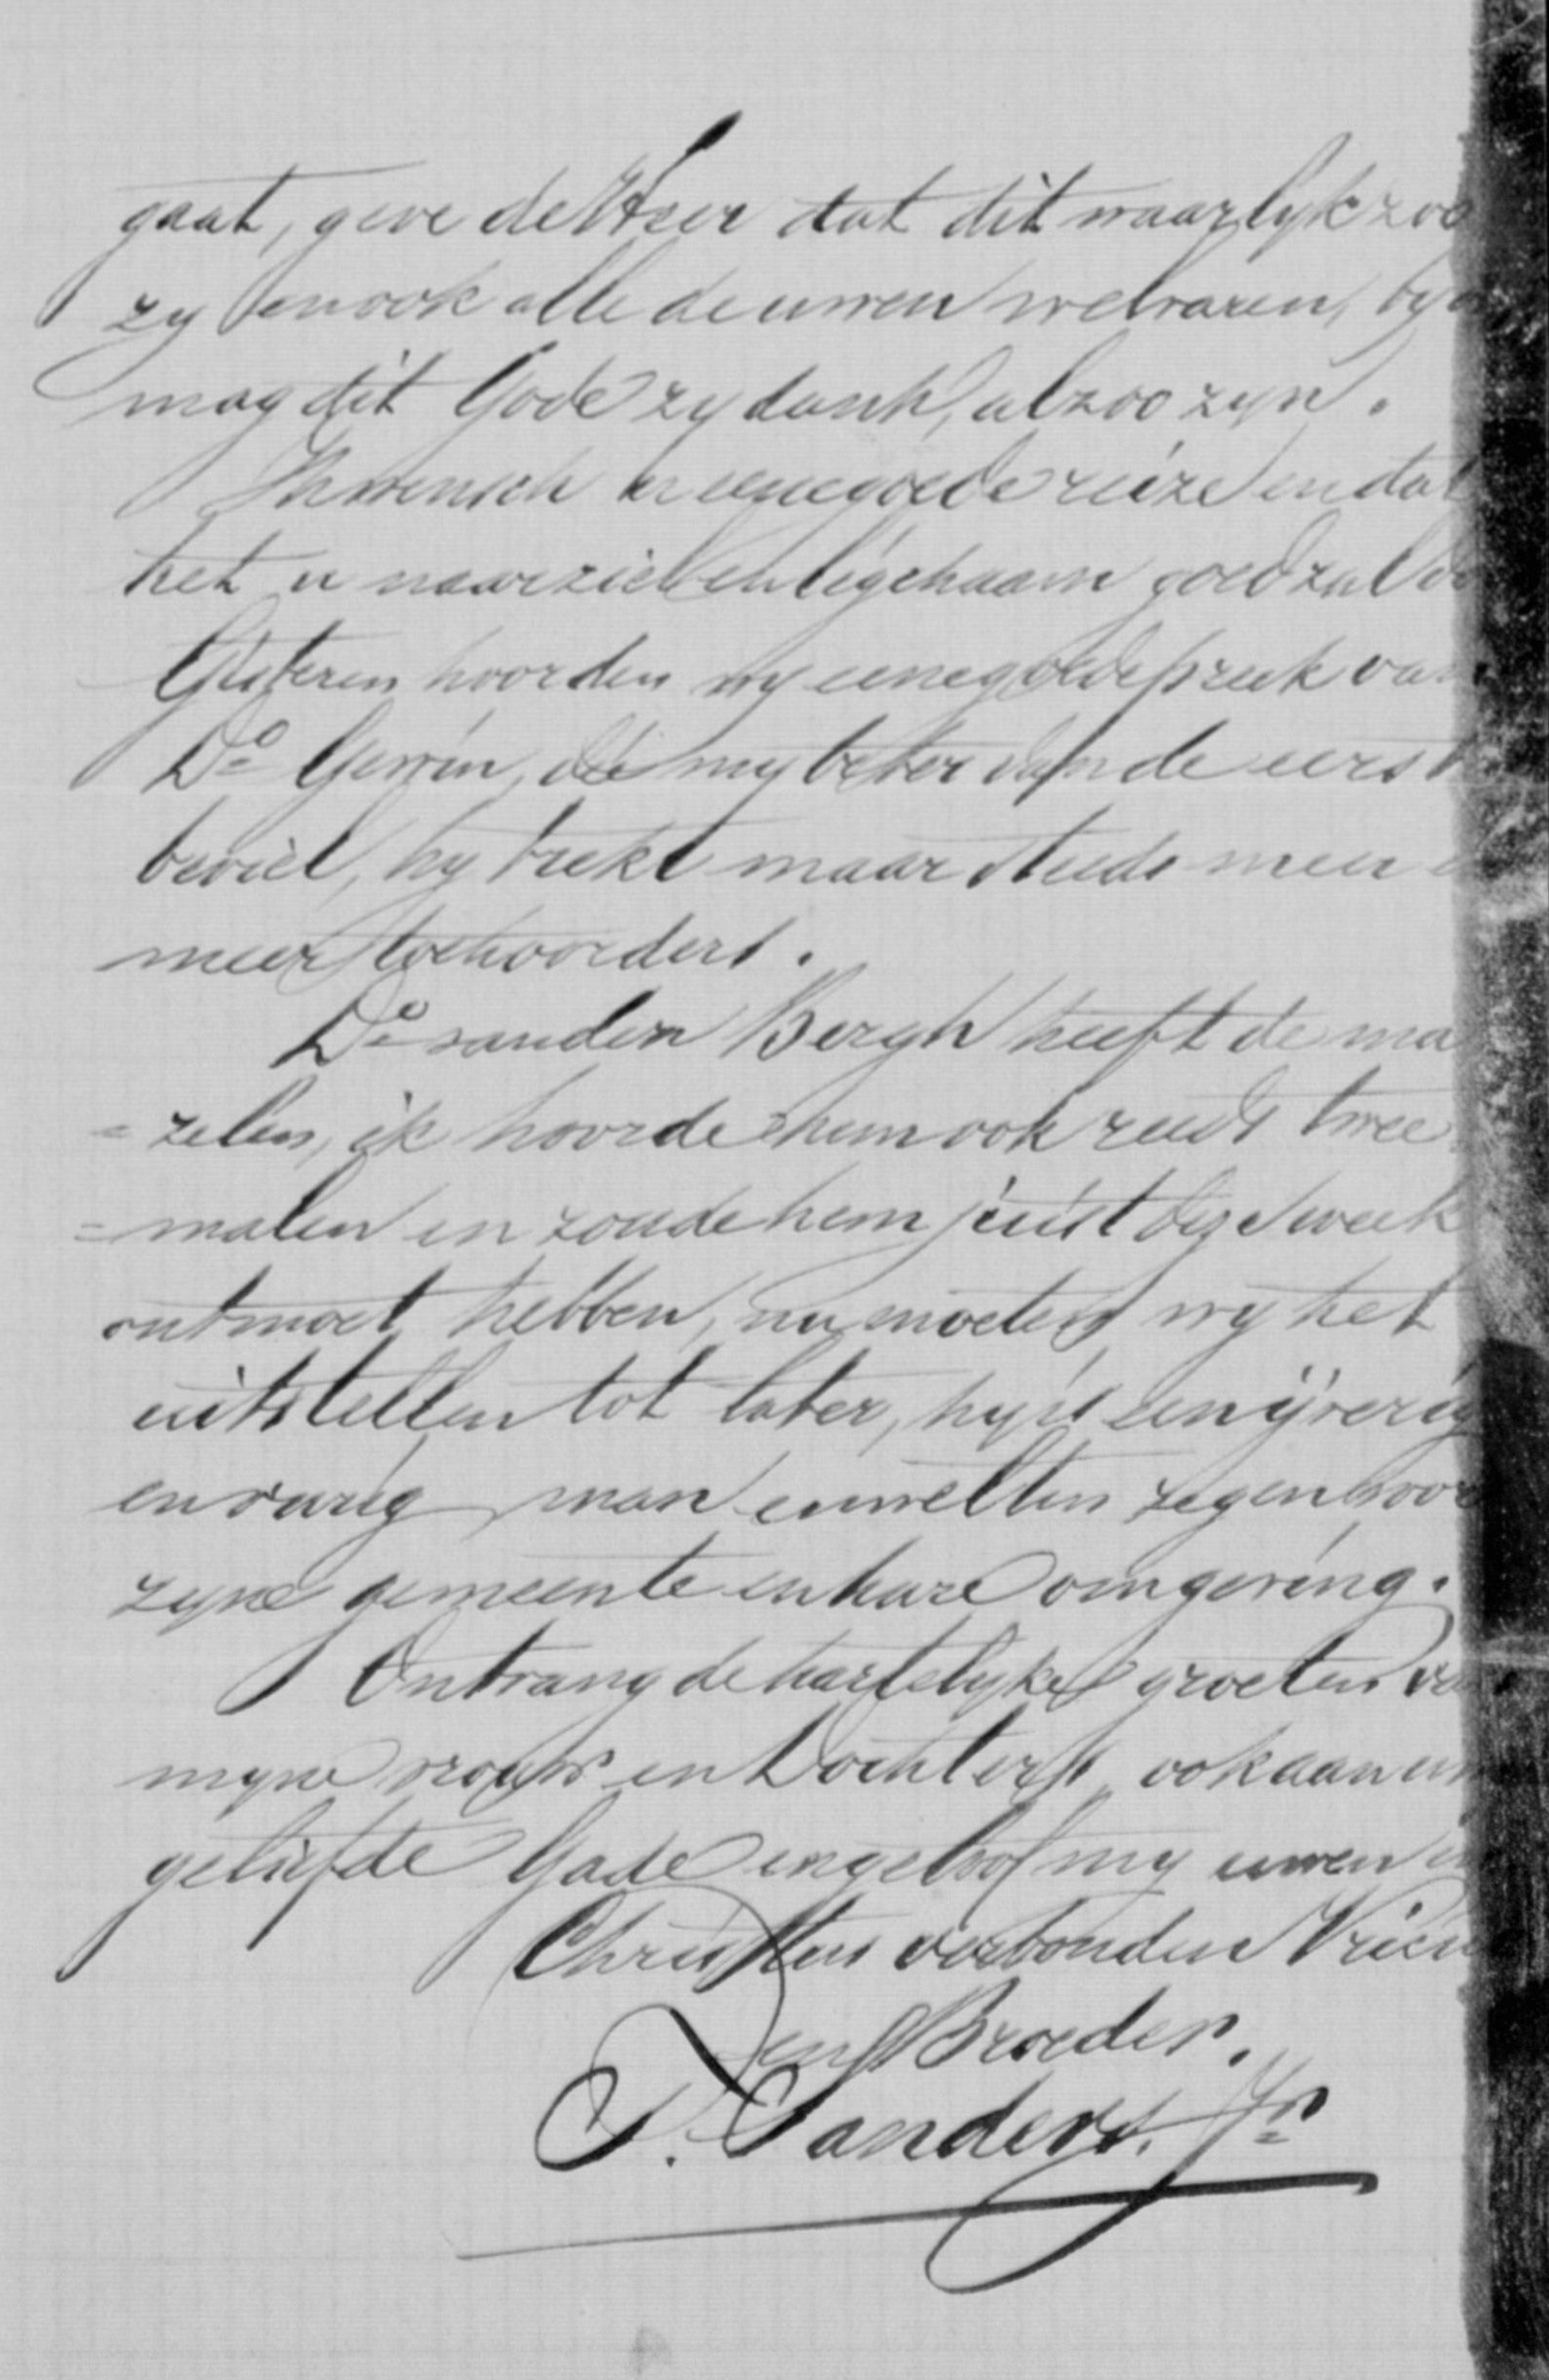 gaat, geve de Heer dat dit waarlyk zoo
zy en ook alle de uwen welvaren, by
mag dit Gode zy dank, alzoo zyn.
Ik wensch u eene goede reize en dat
het u naar ziel en ligchaam goed zal
Gisteren hoorden wy eene goede preek van
Do Gewin, die my beter dan de eerste
beviel, hy trekt maar steeds meer
meer toehoorders.
Do van den Bergh heeft de ma
= zelen, ik hoorde hem ook reeds twee
= malen en zoude hem juist deze week
ontmoet hebben, nu moeten wy het
uitstellen tot later, hy is een ijverig
en vurig man en wel ten zegen voor
zyne gemeente en hare omgeving.
Ontvang de hartelyke groeten van
myne vrouw en Dochters, ook aan uw
geliefde Gade en geloof my uwen in
Christus verbonden Vriend
en Broeder.
P. Sanders. Jr